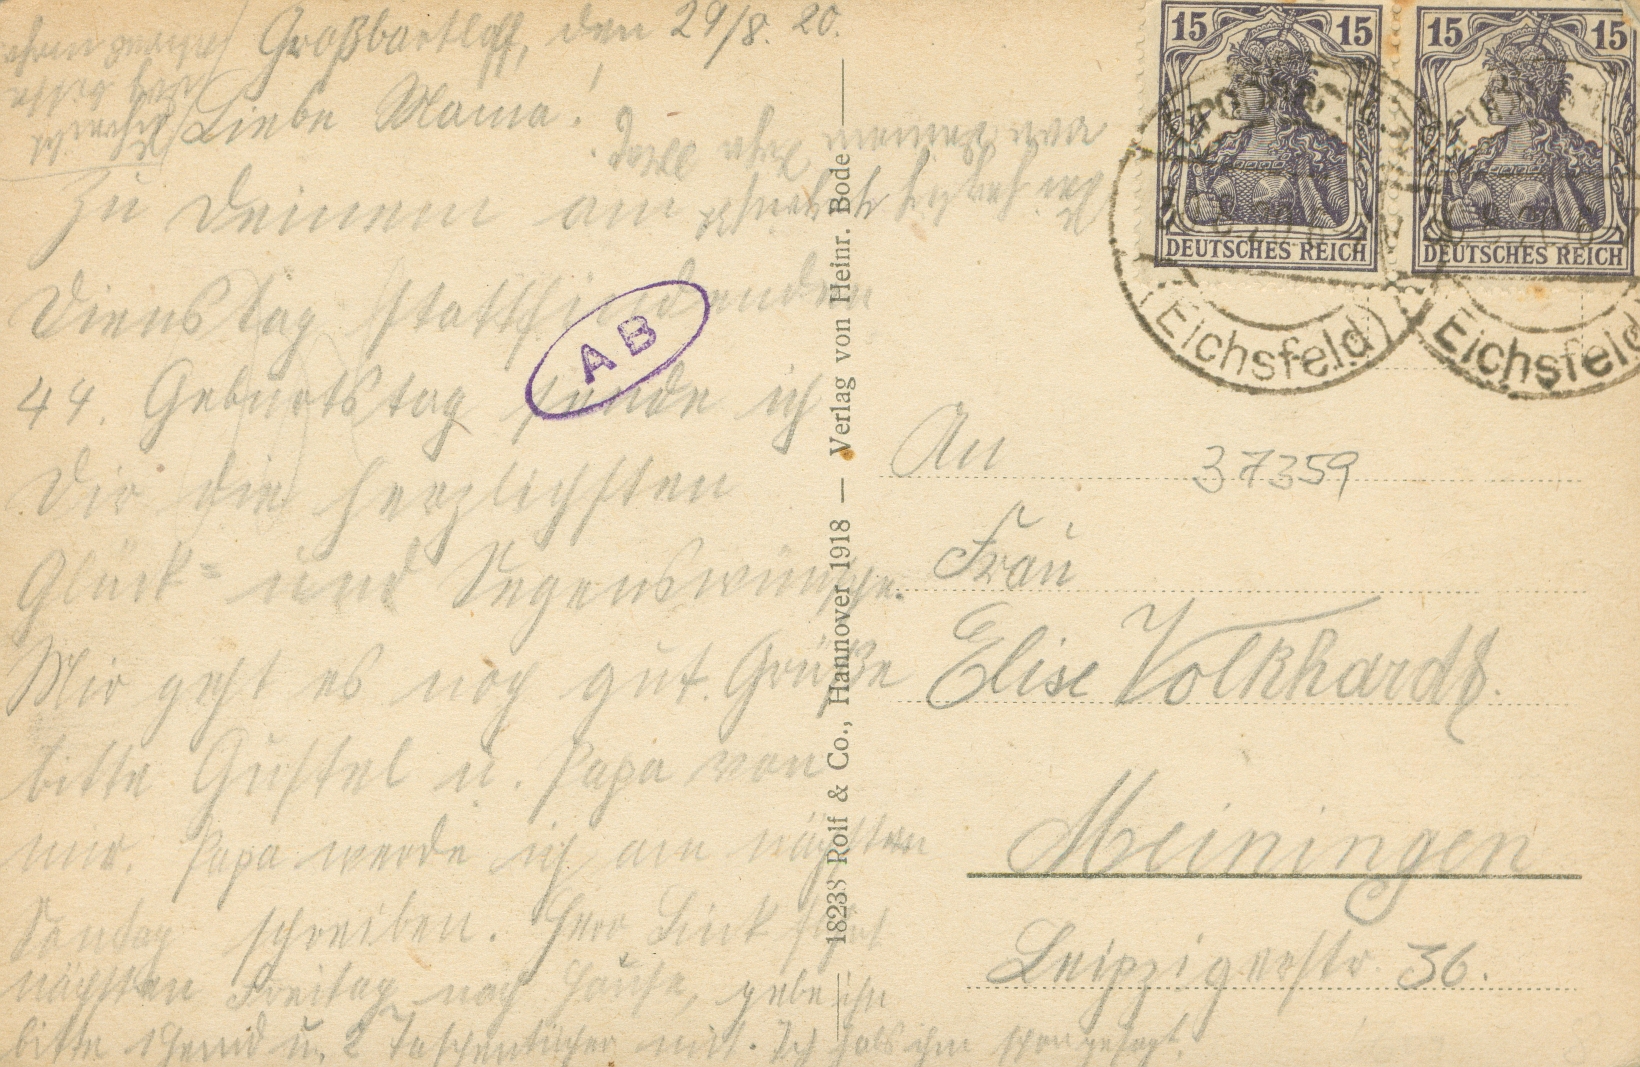 Großbartloff, den 29/8. 20.
Liebe Mama!
Zu Deinem am
Dienstag stattfindenden
44. Geburtstag sende ich
Dir die herzlichsten
Glück- und Segenswünsche.
Mir geht es noch gut. Grüße
bitte Gustel u. Papa von
mir. Papa werde ich am nächsten
Sonntag schreiben. Herr Link fährt
nächsten Freitag nach Hause, gebe ihm
bitte 1 Hemd u. 2 Taschentücher mit. Ich hab's ihm schon gesagt.
A B
18233 Rolf & Co., Hannover 1918 — Verlag von Heinr. Bode
15 15
DEUTSCHES REICH
15 15
DEUTSCHES REICH
(Eichsfeld)
(Eichsfeld
An
37359
Frau
Elise Volkhardt.
Meiningen
Leipzigerstr. 36.